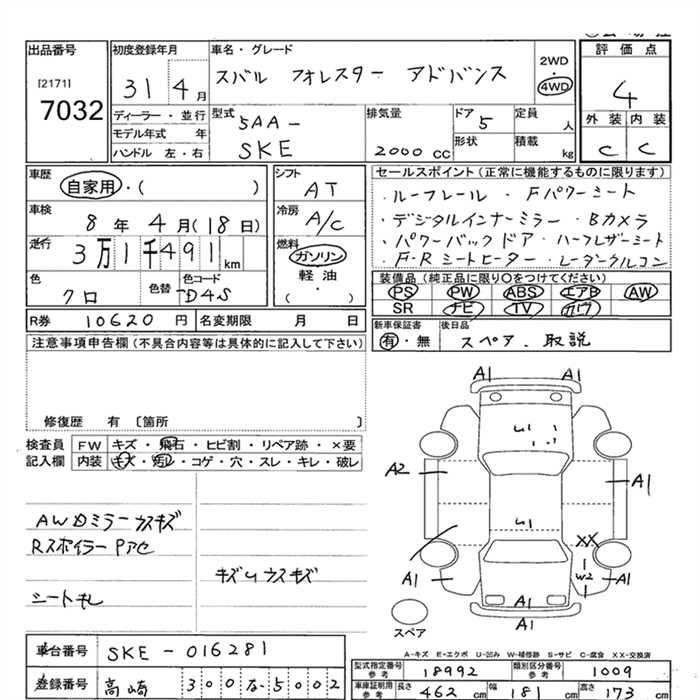 出品番号 初度登録年月 車名・グレード 2WD 評価点
[2171] 31 4月 スバル フォレスター アドバンス 4WD 4
7032
外装 内装
C C
ディーラー・並行 型式 排気量 ドア 定員
モデル年式 年 5AA- 2000 cc 5 人
ハンドル 左・右 SKE 形状 積載 kg
車歴 シフト セールスポイント(正常に機能するものに限ります)
自家用・( ) AT ・ルーフレール ・Fパワーシート
車検 冷房 ・デジタルインナーミラー・Bカメラ
8年 4月(18日) A/C ・パワーバックドア・ハーフレザーシート
走行 燃料 ・F・Rシートヒーター・レーダークルコン
3万1千491km ガソリン
軽油
( )
色 色替 色コード 装備品(純正品に限り○をつけてください)
クロ D4S PS PW ABS エアB AW
SR ナビ TV カワ
R券 10620円 名変期限 月 日 新車保証書 後日品
有・無 スペア、取説
注意事項申告欄(不具合内容等は具体的に記入して下さい)
修復歴 有 〔箇所 〕
検査員 FW キズ・飛石・ヒビ割・リペア跡・×要
記入欄 内装 キズ・汚レ・コゲ・穴・スレ・キレ・破レ
AWDミラーウスキズ
Rスポイラー Pアセ
キズUウスキズ
A1 A1
U1
A2 A1
U1
XX
A1 W2 A1
A1
スペア
A-キズ E-エクボ U-凹み W-補修跡 S-サビ C-腐食 XX-交換済
車台番号 SKE-016281 型式指定番号 参考 18992 類別区分番号 参考 1009
登録番号 高崎 300 5002 車庫証明用 参考 長さ 462 幅 181 高さ 173